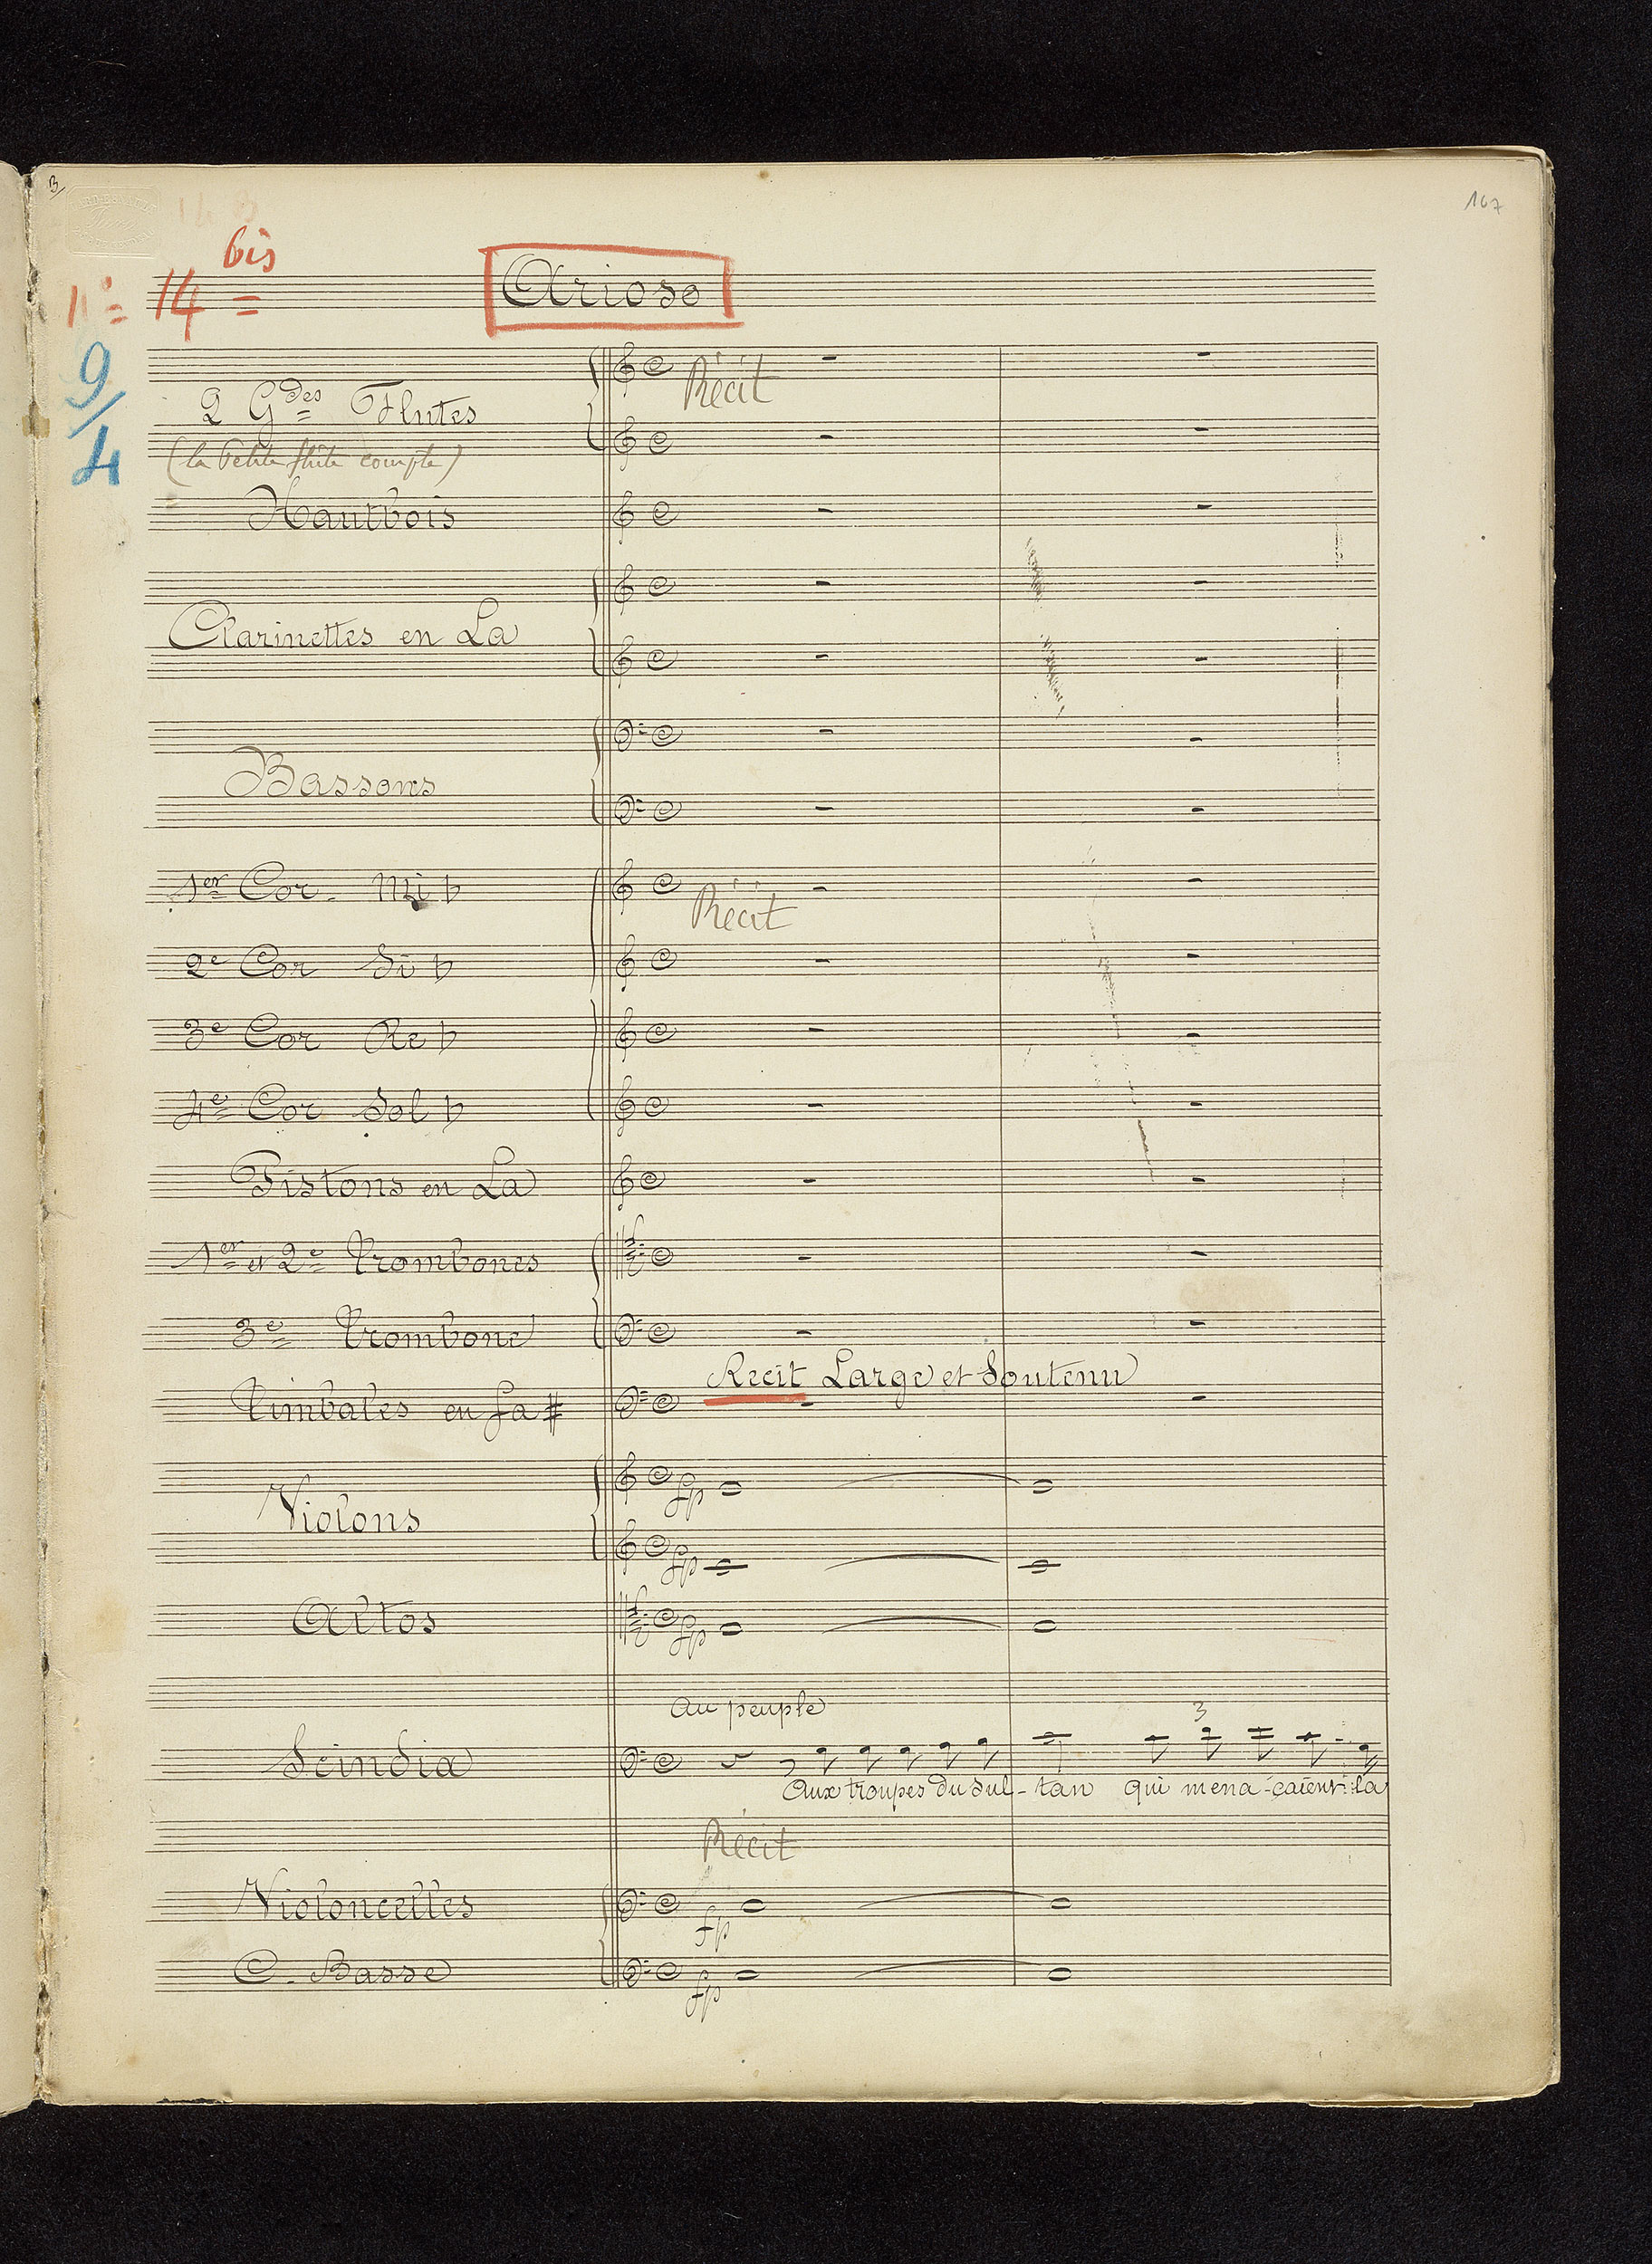 B/
167
bis
N° 14
Arioso
9/4
Récit
2 Gdes Flutes
(la petite flûte compte)
Hautbois
Clarinettes en La
Bassons
1er Cor. Mi ♭
Récit
2e Cor Si ♭
3e Cor Re ♭
4e Cor Sol ♭
Pistons en La
1er et 2e Trombones
3e Trombone
Recit Large et Soutenu
Timbales en fa #
Violons
fp
fp
Altos
fp
au peuple
3
Scindia
Aux troupes du Sul-tan qui mena-çaient la
Récit
Violoncelles
fp
C. Basse
fp